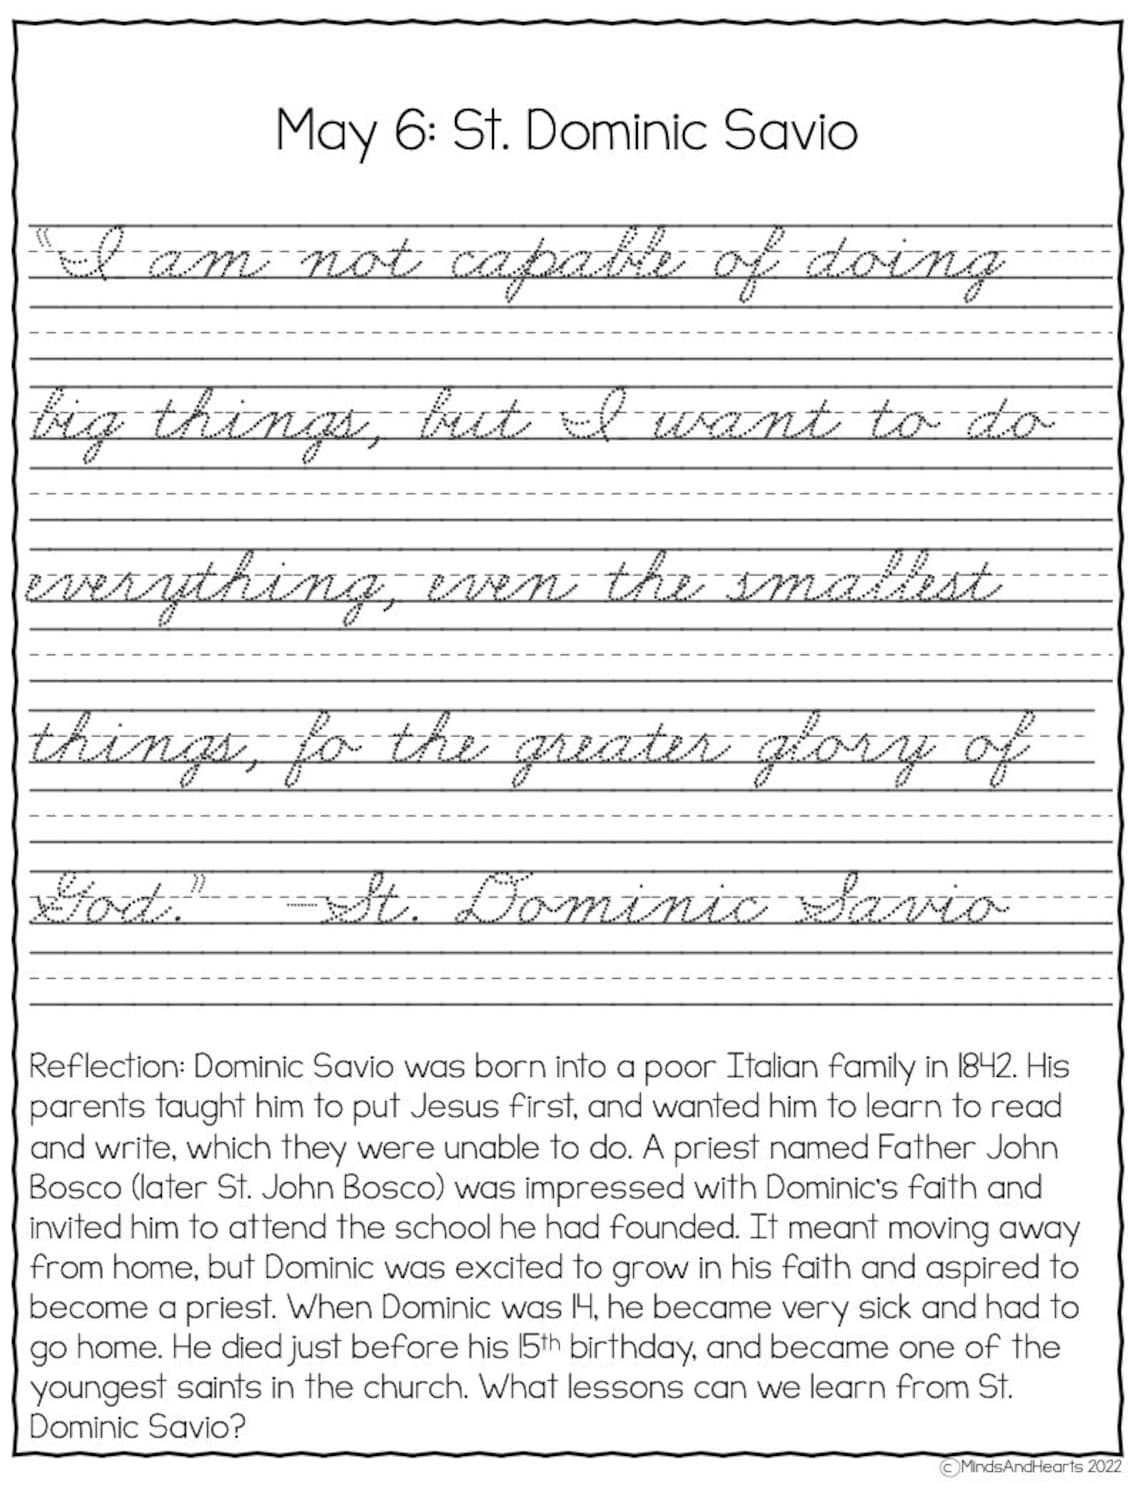 May 6: St. Dominic Savio
"I am not capable of doing
big things, but I want to do
everything, even the smallest
things, fo the greater glory of
God." -St. Dominic Savio
Reflection: Dominic Savio was born into a poor Italian family in 1842. His
parents taught him to put Jesus first, and wanted him to learn to read
and write, which they were unable to do. A priest named Father John
Bosco (later St. John Bosco) was impressed with Dominic's faith and
invited him to attend the school he had founded. It meant moving away
from home, but Dominic was excited to grow in his faith and aspired to
become a priest. When Dominic was 14, he became very sick and had to
go home. He died just before his 15th birthday, and became one of the
youngest saints in the church. What lessons can we learn from St.
Dominic Savio?
©MindsAndHearts 2022